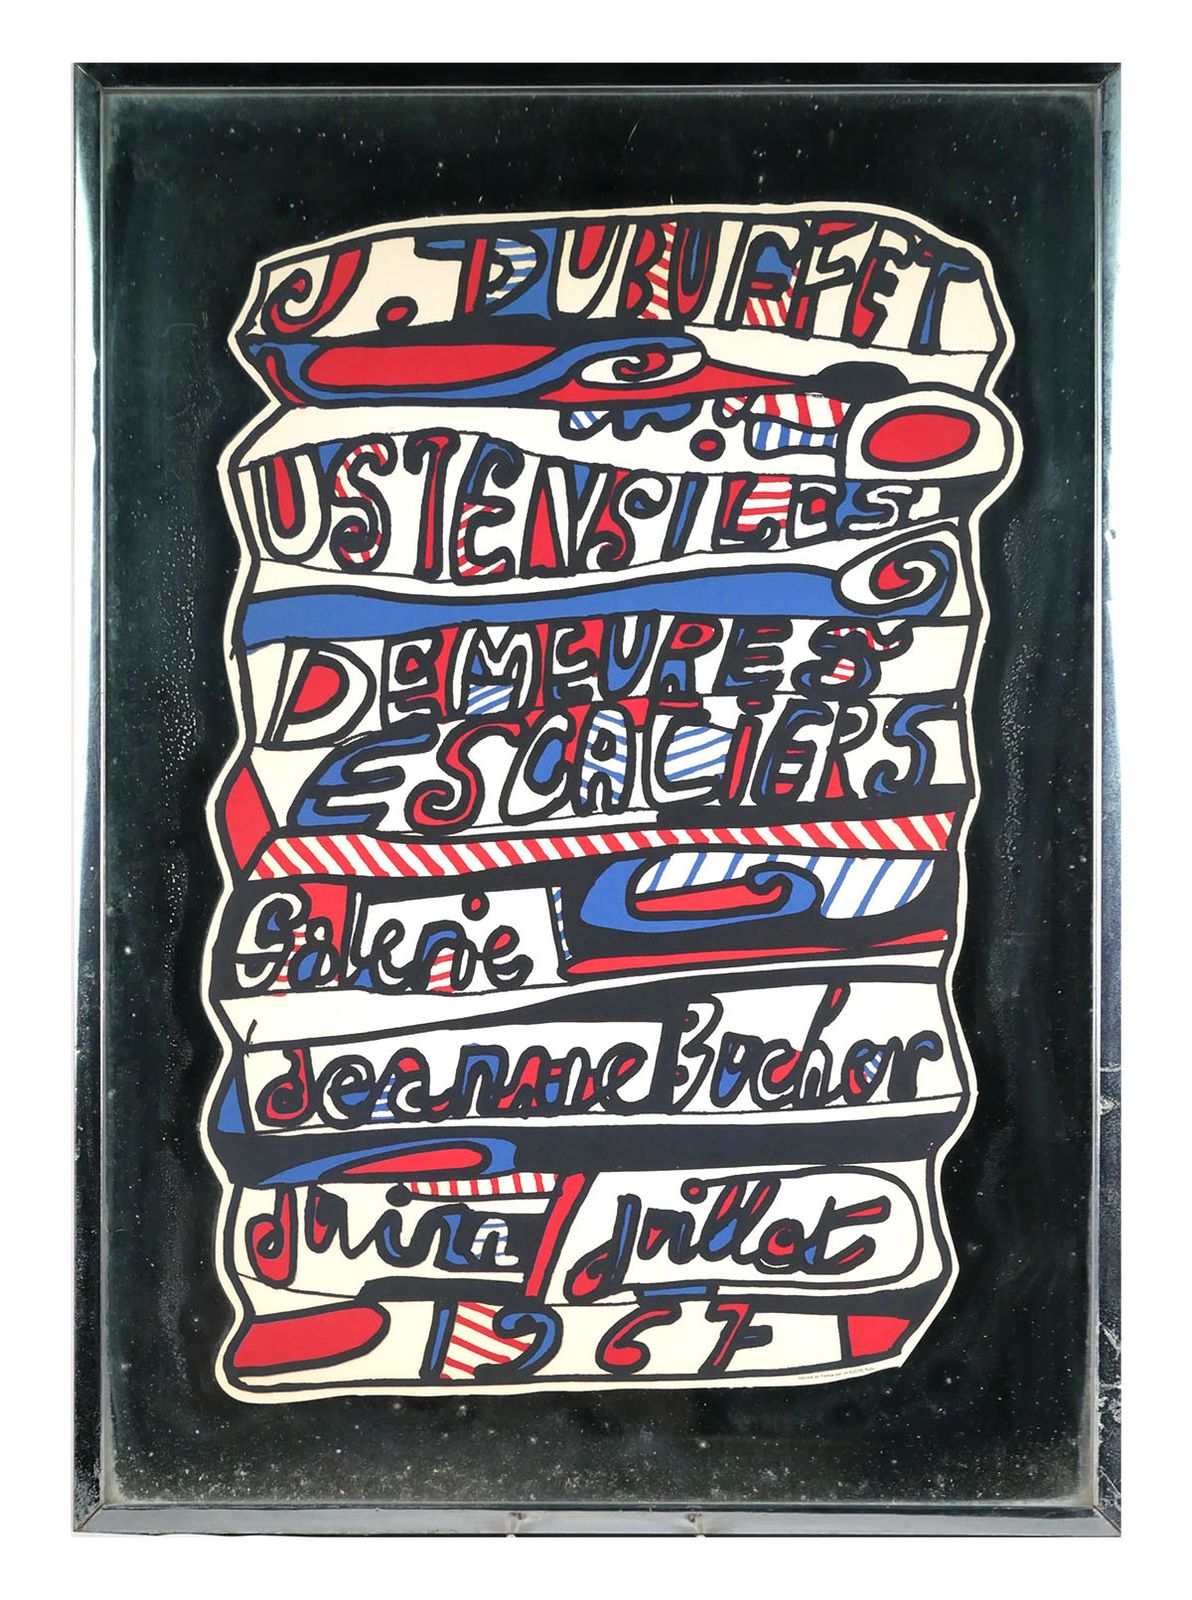 J. DUBUFFET
USTENSILES
DEMEURES
ESCALIERS
Galerie
Jeanne Bucher
Juin / Juillet
1967